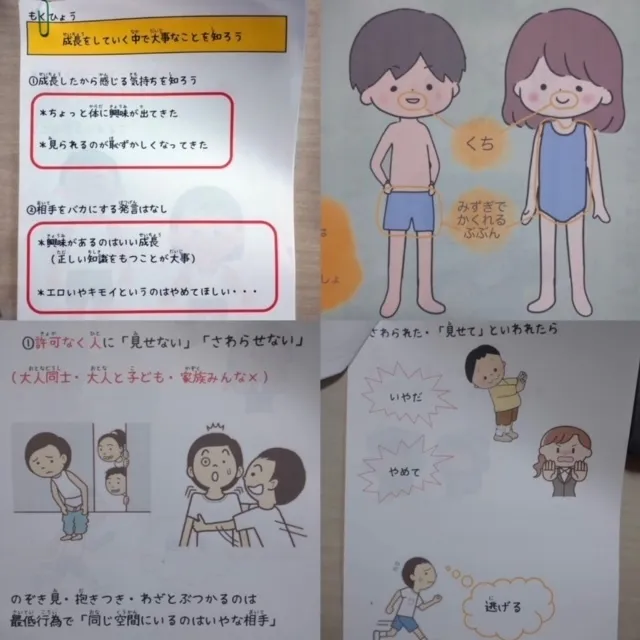 もくひょう
成長をしていく中で大事なことを知ろう
①成長したから感じる気持ちを知ろう
＊ちょっと体に興味が出てきた
＊見られるのが恥ずかしくなってきた
②相手をバカにする発言はなし
＊興味があるのはいい成長
(正しい知識をもつことが大事)
＊エロいやキモイというのはやめてほしい・・・
くち
みずぎで
かくれる
ぶぶん
しょ
①許可なく人に「見せない」「さわらせない」
(大人同士・大人と子ども・家族みんな×)
のぞき見・抱きつき・わざとぶつかるのは
最低行為で「同じ空間にいるのはいやな相手」
さわられた・「見せて」といわれたら
いやだ
やめて
逃げる